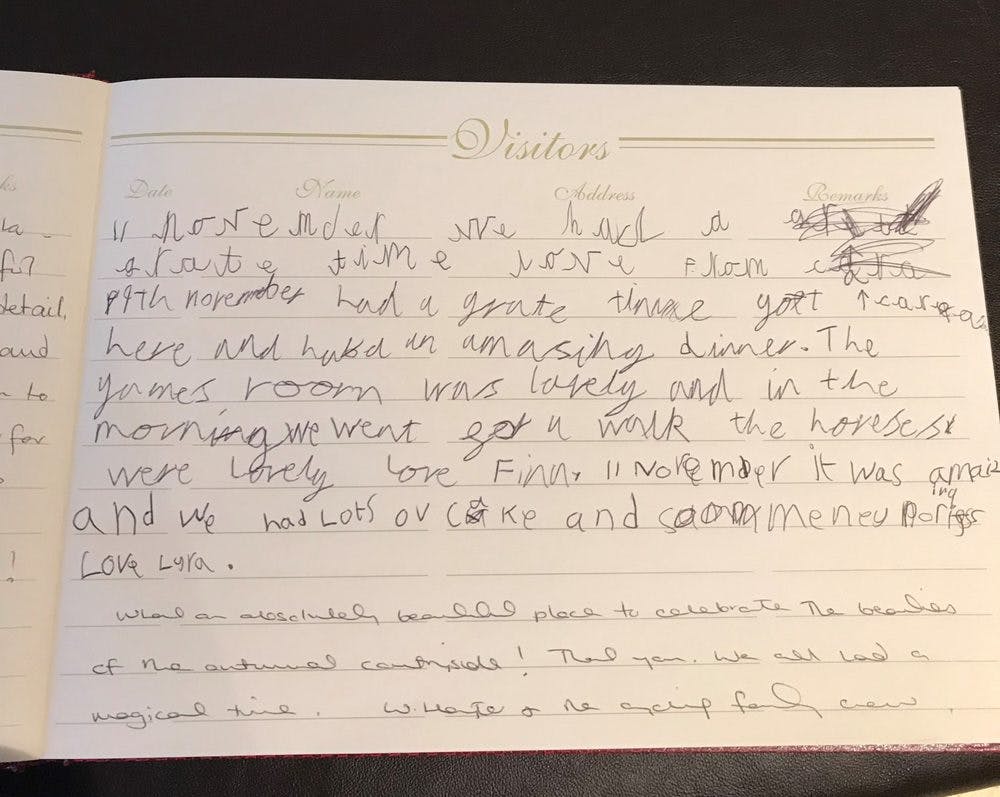 Visitors
ks Date Name Address Remarks
11 november we had a
grate time love from
19th november had a grate time
detail, here and had an amasing dinner. The
and games room was lovely and in the
to morning we went a walk the horeses
for were lovely love Finn. 11 November it was amaizing
and we had Lots ov cake and meney
! Love Lyra.
What an absolutely beautiful place to celebrate the beauties
of the autumnal countryside! Thank you. We all had a
magical time. & the cycling family crew.